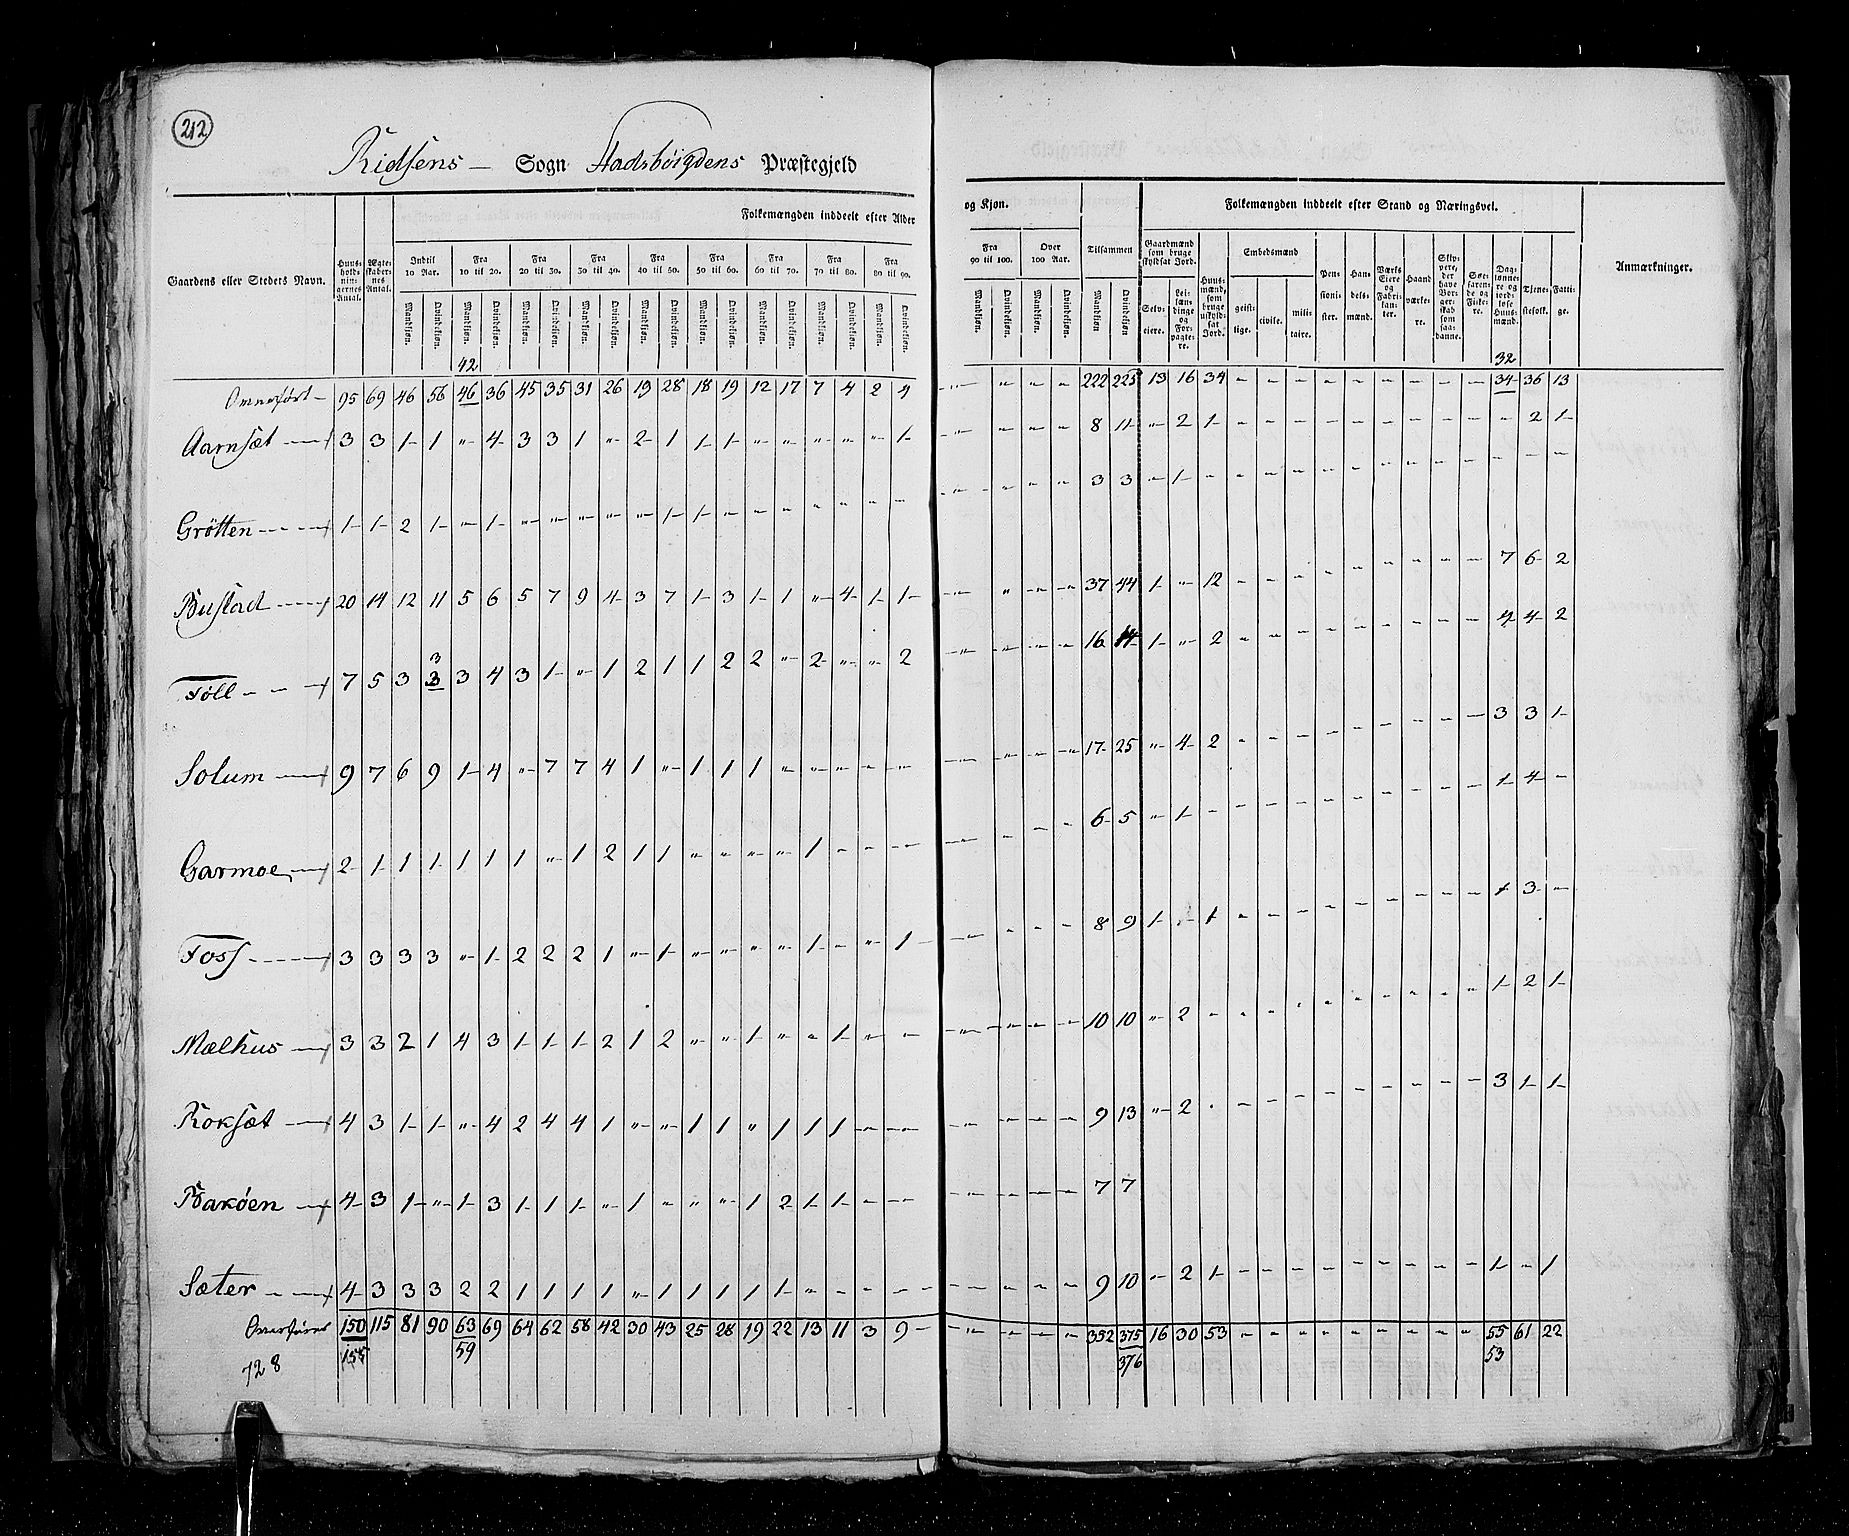 212
Ridsens — Sogn Stadsbøigdens Præstegjeld
Folkemængden inddeelt efter Alder og Kjøn. Folkemængden inddeelt efter Stand og Næringsvei.
Gaardens eller Stedets Navn. Huus-holdningernes Antal. Ægteskabernes Antal. Indtil 10 Aar. Fra 10 til 20. Fra 20 til 30. Fra 30 til 40. Fra 40 til 50. Fra 50 til 60. Fra 60 til 70. Fra 70 til 80. Fra 80 til 90. Fra 90 til 100. Over 100 Aar. Tilsammen Gaardmænd som bruge skyldsat Jord. Huusmænd, som bruge uskyldsat Jord. Embedsmænd Pensionister. Handelsmænd. Værks Eiere og Fabrikanter. Haandværkere. Skippere, der have Borgerskab som saadanne. Søefarende og Fiskere. Dagлønnere og jordløse Huusmænd. Tjenestefolk. Fattige. Anmærkninger.
Mandkjøn. Qvindekjøn. Mandkjøn. Qvindekjøn. Mandkjøn. Qvindekjøn. Mandkjøn. Qvindekjøn. Mandkjøn. Qvindekjøn. Mandkjøn. Qvindekjøn. Mandkjøn. Qvindekjøn. Mandkjøn. Qvindekjøn. Mandkjøn. Qvindekjøn. Mandkjøn. Qvindekjøn. Mandkjøn. Qvindekjøn. Mandkjøn Qvindekjøn Selveiere. Leilændinge og Forpagtere. geistlige. civile. militaire.
42 32
Omverført — 95 69 46 56 46 36 45 35 31 26 19 28 18 19 12 17 7 4 2 4 — " " — — 222 225 13 16 34 — — — — — — — — — 34 36 13
Aarnsæt — 3 3 1 1 " 4 3 3 1 " 2 1 1 1 " " " " " 1 — " " " 8 11 " 2 1 — — — — — — — — — — 2 1
Grøtten — 1 1 2 1 " 1 " " " " " 1 1 " " " " " " " — " " " 3 3 — 1 — — — — — — — — — — — — —
Bustad — 20 14 12 11 5 6 5 7 9 4 3 7 1 3 1 1 " 4 1 1 — " — — 37 44 1 " 12 — — — — — — — — — 7 6 2
3
Føll — 7 5 3 3 3 4 3 1 " 1 2 1 1 2 2 " 2 " " 2 — " — — 16 14 1 " 2 — — — — — — — — — 4 4 2
Solum — 9 7 6 9 1 4 " 7 7 4 1 " 1 1 1 " " " — — — " — — 17 25 " 4 2 — — — — — — — — — 3 3 1
Garmoe — 2 1 1 1 1 1 1 " 1 2 1 1 " " " " 1 — — — — — — — 6 5 " 1 — — — — — — — — — — 1 4 —
Foss — 3 3 3 3 " 1 2 2 2 1 " 1 " " " " 1 — " 1 — — — — 8 9 1 — 1 — — — — — — — — — 1 3 —
Mælhus — 3 3 2 1 4 3 1 1 1 2 1 2 " " 1 " " 1 — — — " — — 10 10 " 2 — — — — — — — — — — 1 2 1
Roksæt — 4 3 1 1 " 4 2 4 4 1 " " 1 1 " 1 1 1 — — — — — — 9 13 " 2 — — — — — — — — — — 3 1 1
Bakøen — 4 3 1 " 1 3 1 1 1 " 1 " " " 1 2 1 1 — — — — — — 7 7
Sæter — 4 3 3 3 2 2 1 1 1 1 " 1 1 1 1 1 " — — — — — — — 9 10 " 2 1 — — — — — — — — — 1 — 1
Overføres 150 115 81 90 63 69 64 62 58 42 30 43 25 28 19 22 13 11 3 9 — " — — 352 375 16 30 53 — — — — — — — — — 55 61 22
728 155 59 376 53